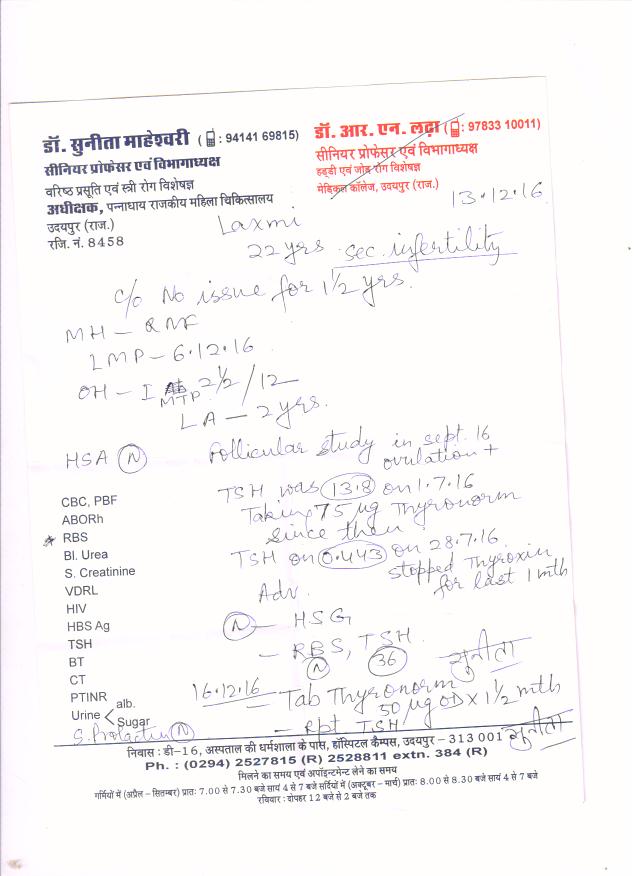 डॉ. सुनीता माहेश्वरी ( : 94141 69815)
सीनियर प्रोफेसर एवं विभागाध्यक्ष
वरिष्ठ प्रसूति एवं स्त्री रोग विशेषज्ञ
अधीक्षक, पन्नाधाय राजकीय महिला चिकित्सालय
उदयपुर (राज.)
रजि. नं. 8458
डॉ. आर. एन. लढ़ा ( : 97833 10011)
सीनियर प्रोफेसर एवं विभागाध्यक्ष
हड्डी एवं जोड़ रोग विशेषज्ञ
मेडिकल कॉलेज, उदयपुर (राज.)
13.12.16
Laxmi
22 yrs sec. infertility
c/o No issue for 1½ yrs.
MH – RMF
LMP – 6.12.16
OH – I MTP 2½/12
LA – 2 yrs.
HSA (N) Follicular study in sept. 16
ovulation +
TSH was 13.8 on 1.7.16
Taking 75 µg Thyronorm
since then
TSH on 0.443 on 28.7.16
stopped Thyroxin
for last 1 mth
Adv.
(N) – HSG
– RBS, TSH.
(N) 36
सुनीता
16.12.16 – Tab Thyronorm
50 µg OD x 1½ mth
– Rpt TSH
सुनीता
CBC, PBF
ABORh
RBS
Bl. Urea
S. Creatinine
VDRL
HIV
HBS Ag
TSH
BT
CT
PTINR
Urine < alb.
Sugar
S. Prolactin (N)
निवास : डी-16, अस्पताल की धर्मशाला के पास, हॉस्पिटल कैम्पस, उदयपुर – 313 001
Ph. : (0294) 2527815 (R) 2528811 extn. 384 (R)
मिलने का समय एवं अपॉइन्टमेन्ट लेने का समय
गर्मियों में (अप्रैल – सितम्बर) प्रातः 7.00 से 7.30 बजे सायं 4 से 7 बजे सर्दियों में (अक्टूबर – मार्च) प्रातः 8.00 से 8.30 बजे सायं 4 से 7 बजे
रविवार : दोपहर 12 बजे से 2 बजे तक